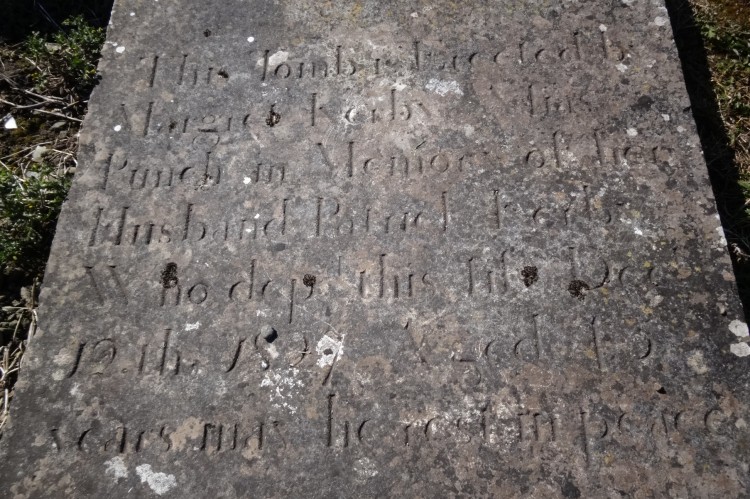 This Tomb is Errected by
Margret Kerby Alias
Punch in Memory of her
Husband Patrick Kerby
Who dep.d this life Decr
12.th. Aged
years may he rest in peace